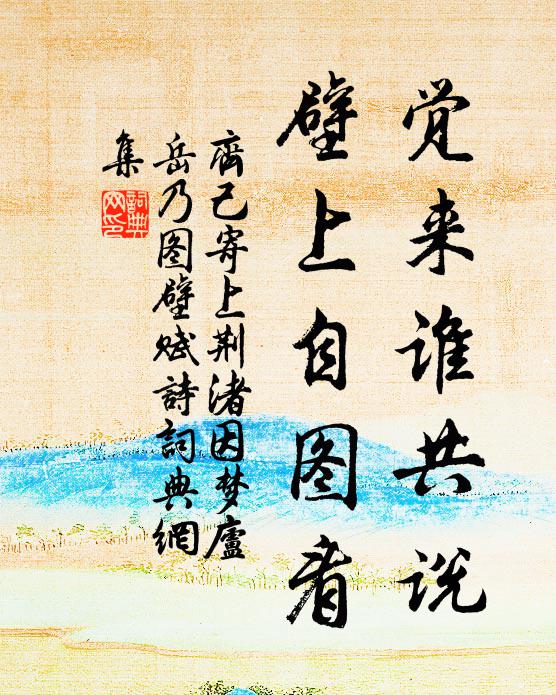 觉来谁共说
壁上自图看
齊己寄上荆渚因梦廬
岳乃图壁赋詩詞典網
集
詞典
网印